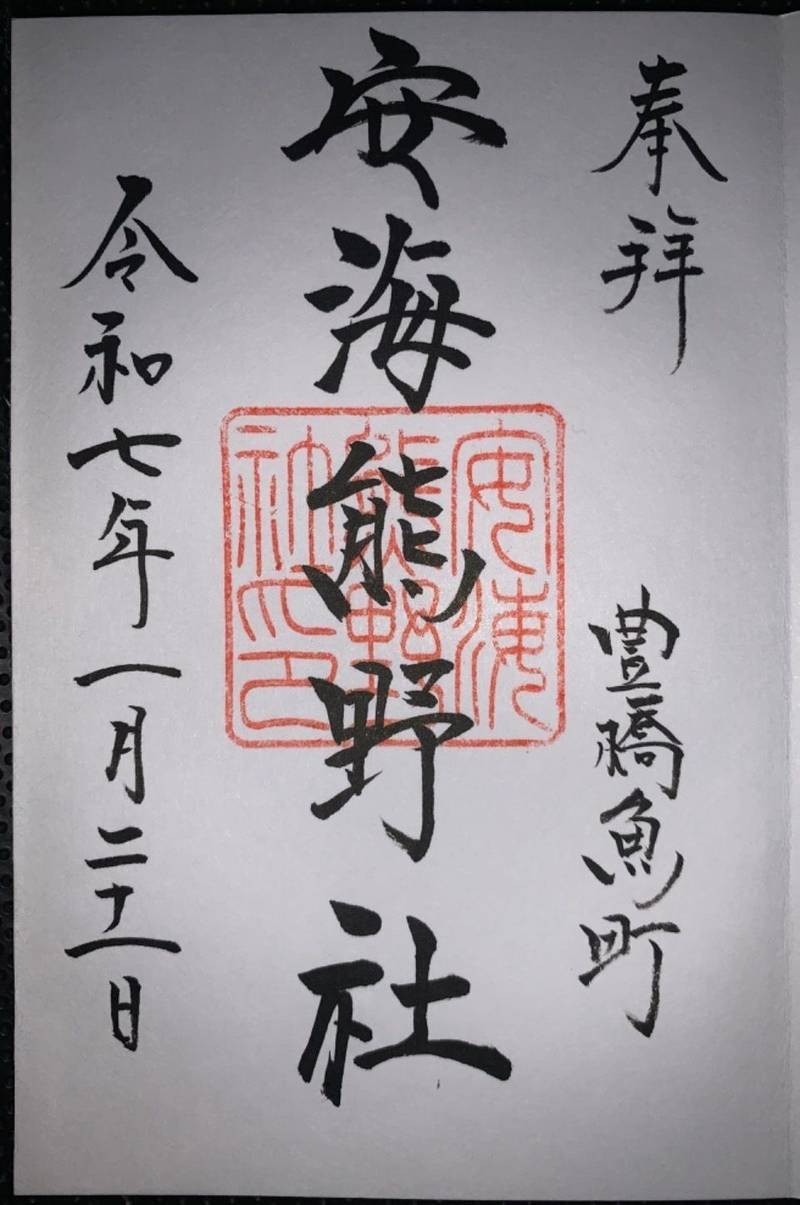 奉拝
豊橋魚町
安海熊野社
安海
熊野
社印
令和七年一月二十一日